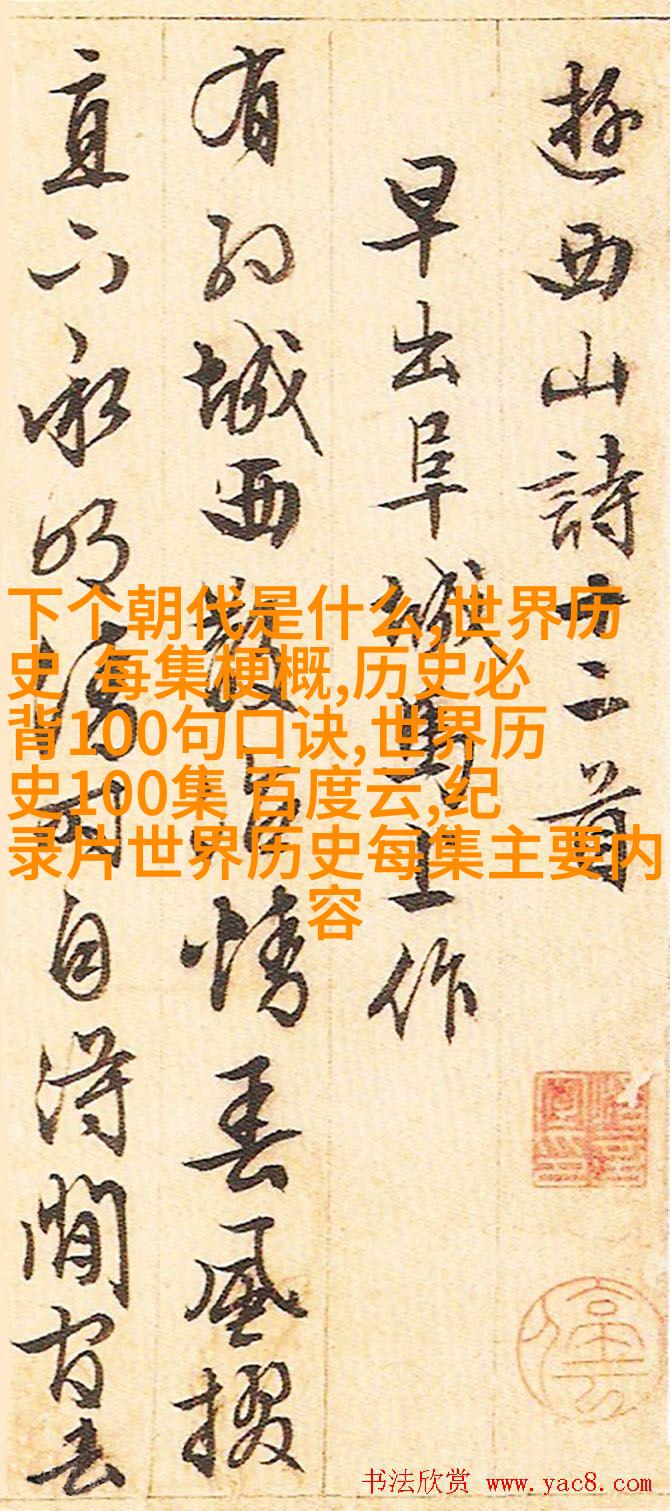 遊西山詩十二首
早出阜城馬上作
有約城西散情春風掇
直下承明自得閒官去
下个朝代是什么,世界历
史 每集梗概,历史必
背100句口诀,世界历
史100集 百度云,纪
录片世界历史每集主要内
容
书法欣赏 www.yac8.com